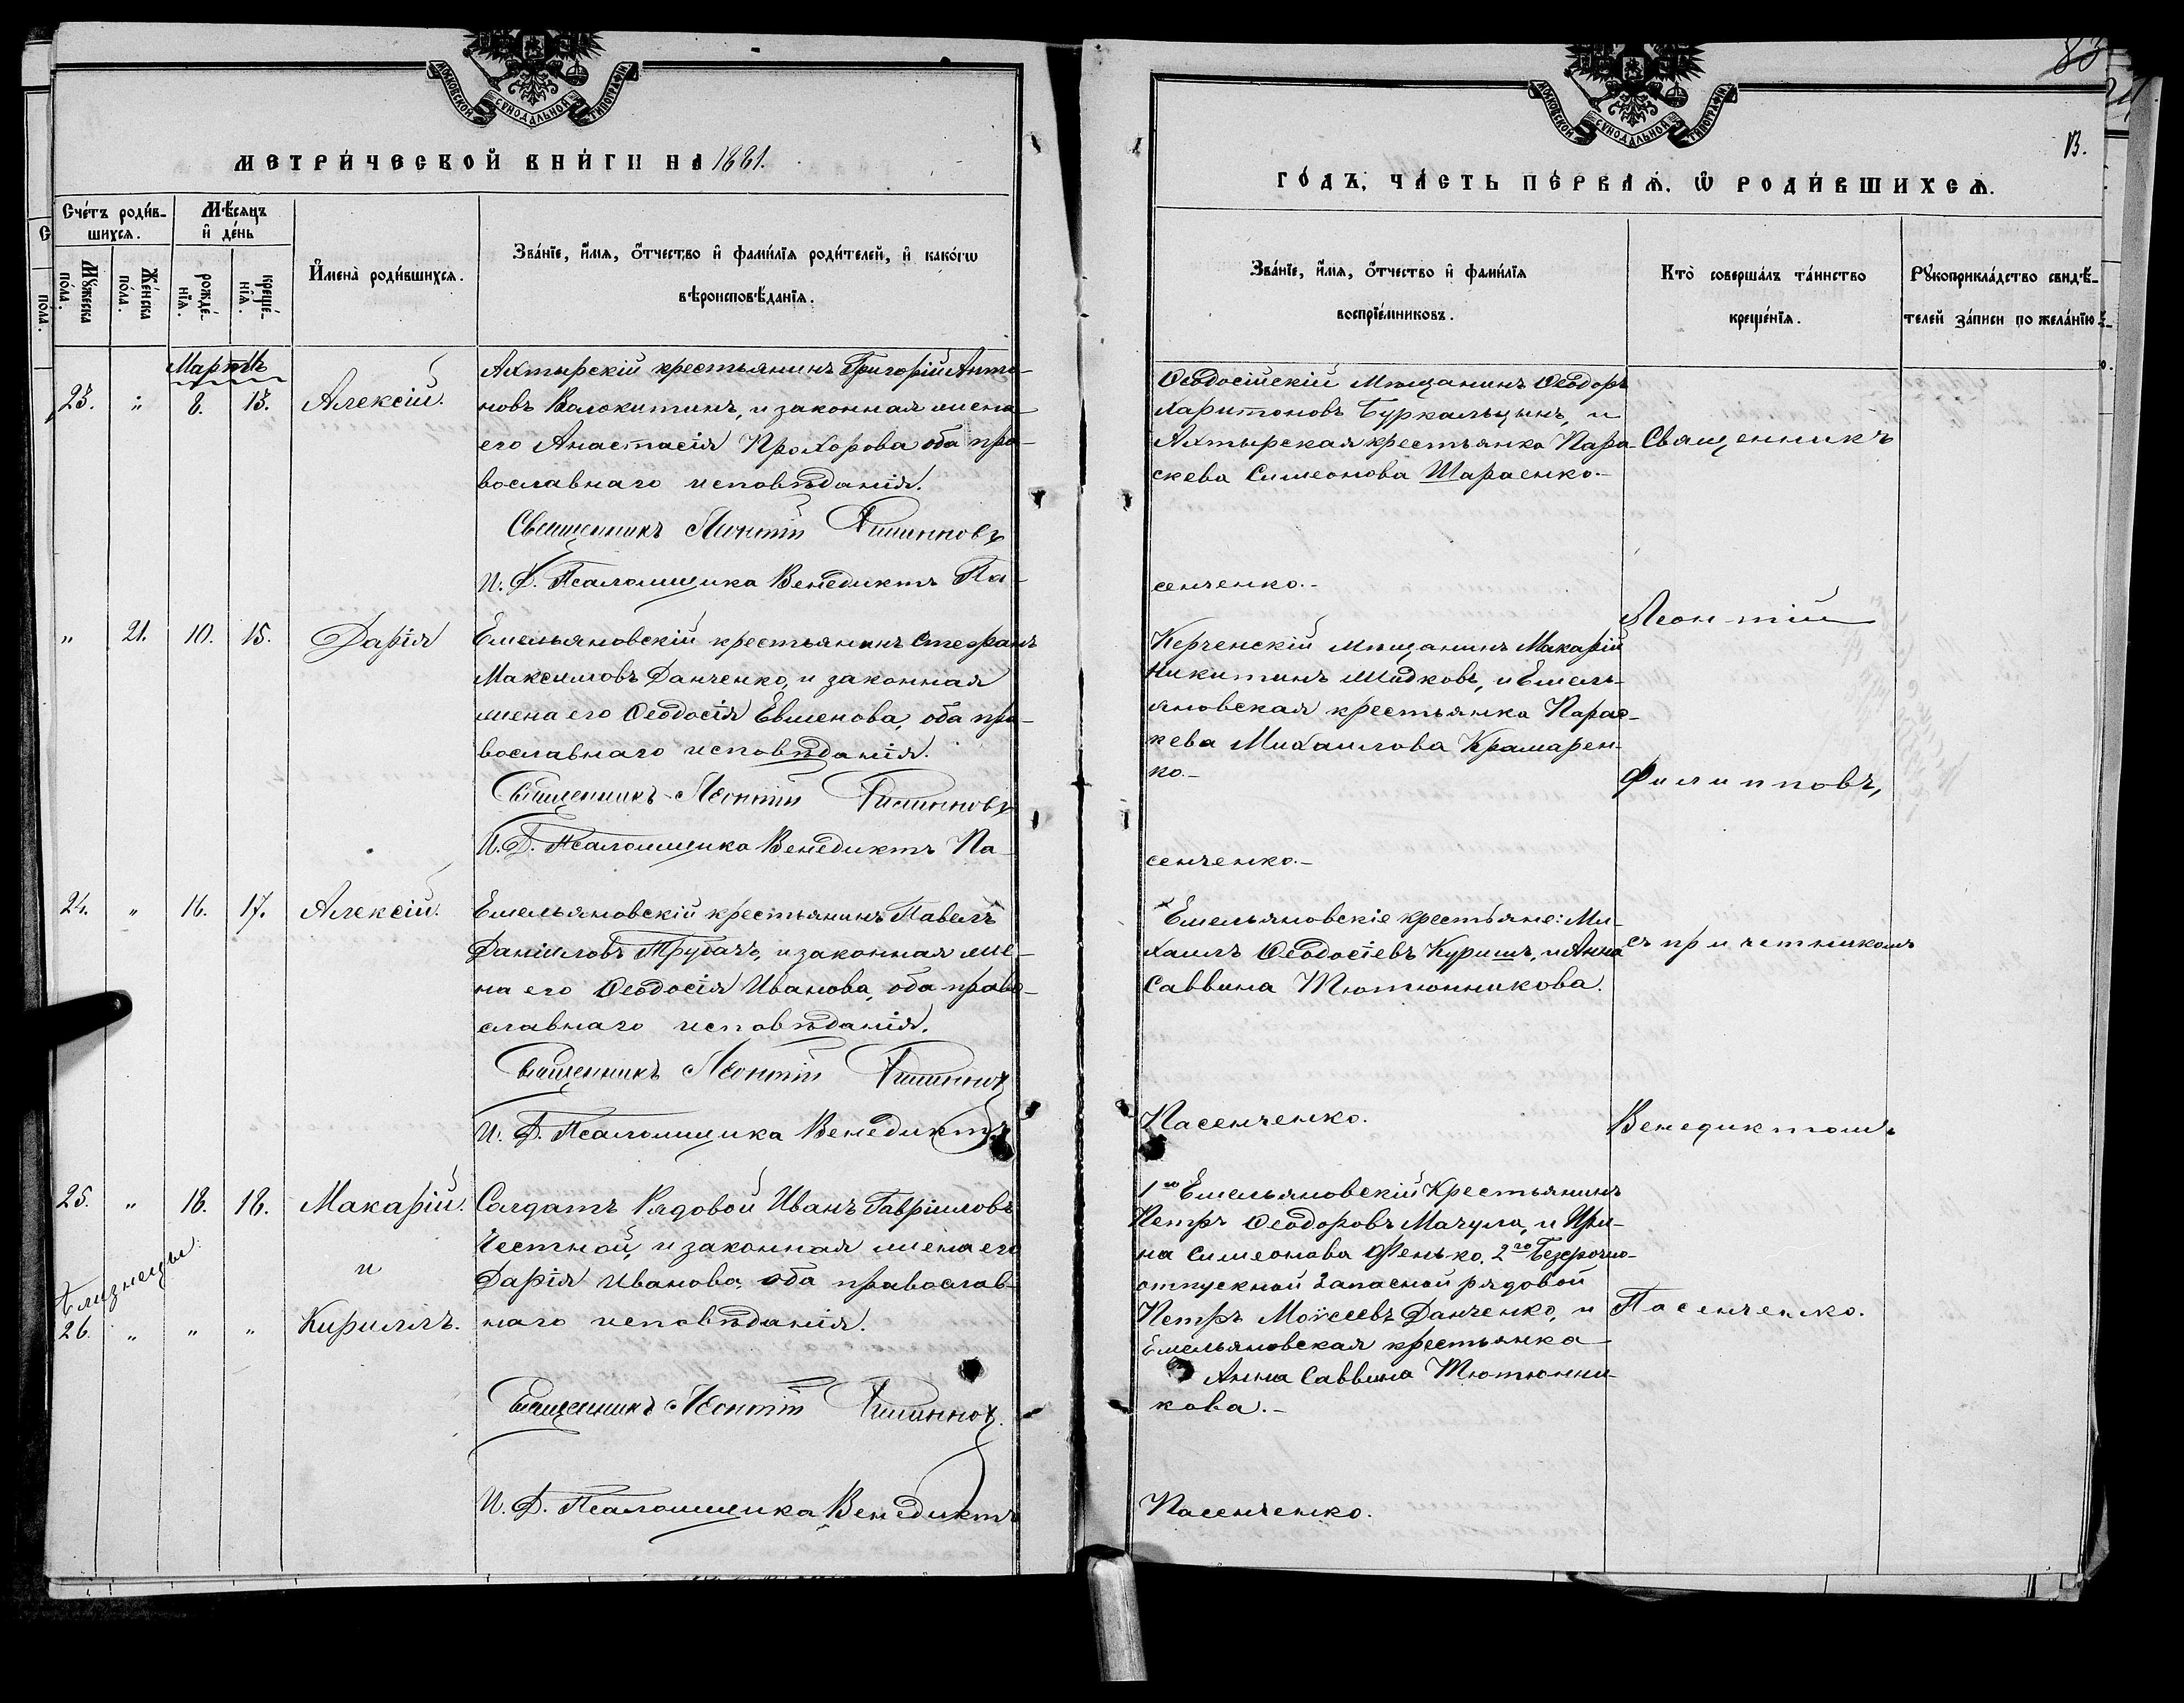 МОСКОВСКОЙ СѴНОДАЛЬНОЙ ТИПОГРАФІИ
МЕТРИ́ЧЕСКОЙ КНИ́ГИ НА 1881.
Сче́тъ роди́в-
шихсѧ.
Мѣ́сѧцъ
и҆ де́нь
Мꙋ́жеска
по́ла.
Же́нска
по́ла.
рожде́-
нїѧ.
креще́-
нїѧ.
И҆мена̀ роди́вшихсѧ.
Зва́нїе, и҆́мѧ, ѻ҆́тчество и҆ фами́лїѧ роди́телей, и҆ како́гѡ
вѣроисповѣ́данїѧ.
Мартъ
23.
"
8.
13.
Алексій.
Ахтырскій крестьянинъ Григорій Анто-
новъ Волокитинъ, и законная жена
его Анастасія Прохорова оба пра-
вославнаго исповѣданія.
Священникъ Леонтій Филипповъ
И. Д. Псаломщика Венедиктъ Па-
"
21.
10.
15.
Дарія
Емельяновскій крестьянинъ Стефанъ
Максимовъ Данченко, и законная
жена его Ѳеодосія Евменова, оба пра-
вославнаго исповѣданія.
Священникъ Леонтій Филипповъ
И. Д. Псаломщика Венедиктъ Па-
24.
"
16.
17.
Алексій.
Емельяновскій крестьянинъ Павелъ
Даніиловъ Трубачъ, и законная же-
на его Ѳеодосія Иванова, оба право-
славнаго исповѣданія.
Священникъ Леонтій Филипповъ
И. Д. Псаломщика Венедиктъ
25.
"
18.
18.
Макарій.
и
Близнецы
26.
"
"
"
Кириллъ.
Солдатъ Рядовой Иванъ Гавріиловъ
Честной, и законная жена его
Дарія Иванова, оба православ-
наго исповѣданія.
Священникъ Леонтій Филипповъ.
И. Д. Псаломщика Венедиктъ
83
МОСКОВСКОЙ СѴНОДАЛЬНОЙ ТИПОГРАФІИ
ГО́ДЪ, ЧА́СТЬ ПЕ́РВАѦ, Ѡ҆ РОДИ́ВШИХСѦ.
Зва́нїе, и҆́мѧ, ѻ҆́тчество и҆ фами́лїѧ
воспрїе́мниковъ.
Кто̀ соверша́лъ та́инство
креще́нїѧ.
Рꙋкоприкла́дство свидѣ́-
телей за́писи по жела́нїю
Ѳеодосійскій мѣщанинъ Ѳеодоръ
Харитоновъ Буркальцынъ, и
Ахтырская крестьянка Пара-
скева Симеонова Шараенко.-
сенченко.-
Керченскій мѣщанинъ Макарій
Никитинъ Шидковъ, и Емель-
яновская крестьянка Парас-
кева Михаилова Крамарен-
ко.-
сенченко.-
Емельяновскіе крестьяне: Ми-
хаилъ Ѳеодосіевъ Куришъ, и Анна
Саввина Тютюнникова.
Пасенченко.
1го Емельяновскій Крестьянинъ
Петръ Ѳеодоровъ Мачула, и Ири-
на Симеонова Фенько. 2го Безсрочно-
отпускной Запасной рядовой
Петръ Моѵсеевъ Данченко, и
Емельяновская крестьянка
Анна Саввина Тютюнни-
кова.-
Пасенченко.
Священникъ
Леонтій
Филипповъ,
съ причетникомъ
Венедиктомъ
Пасенченко.